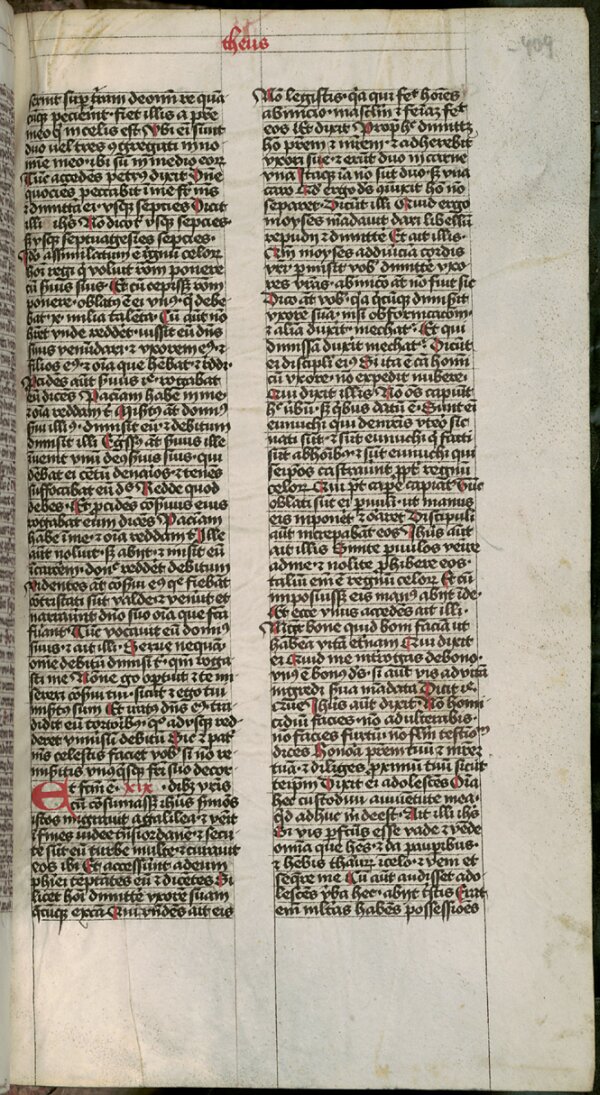 theus
409
serint sup̄ t̄ram de omī re quā
cūq̃ pecierint · fiet illis a p̄re
meo q̄ in celis est Vbi eī sunt
duo vel tres ꝯgregati in no
mīe meo · ibi sū in medio eorꝝ
Tūc accedēs petrꝰ dixit Dñe
quocies peccabit ī me fr̄ mīs
⁊ dimittā ei · vsq̃ sepcies Dicit
illi ihs̄ Nō dico tˢ vsq̃ sepcies ·
sȝ vsq̃ septuagesies sepcies ·
Jdō assimilatum ē regnū celorꝝ
hoī regi q̄ voluit rōm ponere
cū s̄uis suis · Et cū cepissȝ rōm
ponere · oblatꝰ ē ei vnꝰ · q̄ debe
bat · x · milia taleta · Cū āt nō
h̄ret vnde reddet · iussit eū dn̄s
suus venūdari · ⁊ vxorem eiꝰ · ⁊
filios eiꝰ · ⁊ oīa que hēbat · ⁊ reddi ·
Pcidēs aūt s̄uus ił̄e · rogabat
eū dices · Paciam habe in me ·
⁊ oīa reddam tˢ Misertꝰ āt domīꝰ
s̄ui illiꝰ · dimisit eū · ⁊ debitum
dimisit illi Egssꝰ āt s̄uus ille
īuenit vnū de ꝯs̄uis suis · qui
debat ei cētū denarios · ⁊ tenēs
suffocabat eū ds̄ Redde quod
debes · Et ꝓcidēs ꝯs̄uus eius
rogabat eum dicēs Paciam
habe ī me · ⁊ oīa reddam tˢ Ille
aūt noluit · sȝ abijt · ⁊ misit eū
ī carcem · donˢ reddet debitum
Videntes āt ꝯs̄ui eiꝰ q̄ fiebāt
ꝯtristati sūt valde · ⁊ venūt et
narraūt dño suo oīa que fcā
fuant · Tūc vocauit eū domīꝰ
suus · ⁊ ait illi · Serue nequā
om̄e debitū dimisi tˢ · qm̄ roga
sti me Nōne go optuit ⁊ te mi
sereri ꝯs̄ui tui · sicut ⁊ ego tui
mis̄tus sum Et iratꝰ dn̄s eiꝰ tra
didit eū tortoribꝰ · qꝰ adusq̃ red
deret vniūsū debitū Sic ⁊ pat̄
mīs celestis faciet vob̄ · si nō re
miseritis vnꝰ qsq̃ fr̄i suo de cor
Et fcm̄ ē · xix · dibꝰ vr̄is
cū ꝯsumassȝ ihus s̄mōēs
istos migrauit a galilea · ⁊ veīt
ī fines iudee tn̄s iordanē · ⁊ secu
te sūt eū turbe multe · ⁊ curauit
eos ibi Et accesserūt ad eum
phīei teptātes eū ⁊ dicetes Si
licet hoī dimitte vxorē suam
q̄cūq̃ ex cā Qui rn̄dēs ait eis
Nō legistis · q̄a qui fcˢ hoīes
ab īnicio · masclm̄ ⁊ feīaȝ fcˢ
eos Et dixit Prophˢ dimittȝ
hō prem̄ ⁊ mr̄em · ⁊ adherebit
vxori sue · ⁊ erūt duo in carne
vna Itaq̃ iā nō sūt duo · sȝ vna
caro Qd̄ ergo ds̄ ꝯiūxit hō nō
separet · Dicūt illi Quid ergo
moyses mādauit dari libellū
repudij ⁊ dimitte Et ait illis ·
Qm̄ moyses ad duricia cordis
vr̄i pmisit vob̄ dimitte vxo
res vr̄as · ab īnicō āt nō fuit sic
Dico āt vob̄ · q̄a q̄cūq̃ dimis̄it
vxorē suā · nisi ob fornicacōm ·
⁊ aliā duxit · mechatˢ · Et qui
dimissā duxit mechatˢ · Dicūt
ei discipli eiꝰ Si ita ē cā homī
cū vxore · nō expedit nubere ·
Qui dixit illis Nō oēs capiūt
hˢ ūbū · sȝ q̄bus datū ē · Sunt eī
eunuchi qui de mr̄is vtˢo sic
nati sūt · ⁊ sūt eunuchi q̄ facti
sūt ab hoībꝰ · ⁊ sūt eunuchi qui
seipōs castraunt ꝓpt̄ regnū
celorꝝ Qui pt̄ capˢe capiat Tūc
oblati sūt ei puuli · ut manus
eis imponet ⁊ oraret Discipuli
aūt increpabāt eos Ihus aūt
ait illis Sinite puulos veīre
ad me · ⁊ nolite ꝓhibere eos ·
taliū em̄ ē regnū celorꝝ Et cū
imposuissȝ eis manꝰ abijt īde ·
Et ecce vnus accedēs ait illi ·
Magr̄ bone quid boni faciā ut
habeā vitā etnam Qui dixit
ei Quid me int̄rogas de bono ·
vnꝰ ē bonꝰ ds̄ · si aūt vis ad vitā
ingredi s̄ua mādata Dicit ił̄e ·
Que Ihus aūt dixit Nō homi
cidiū facies · nō adulterabis ·
nō facies furtū · nō flm̄ testioᷤ
dices Honora prem̄ tuū ⁊ mr̄eȝ
tuā · ⁊ diliges ꝓximū tuū sicut
teipm̄ Dixit ei adolescēs Oīa
hec custodiui a iuuētute mea ·
qd̄ adhuc m deest · Ait illi ihs̄
Si vis ꝑfcūs esse vade ⁊ vēde
omīa que hēs · ⁊ da pauꝑibus ·
⁊ hēbis thaurȝ ī celo · ⁊ vem̄ et
seq̄re me Cū aūt audisset ado
lescēs ūba hec · abijt tˢstis Erat
em̄ mltas habēns possessiōes